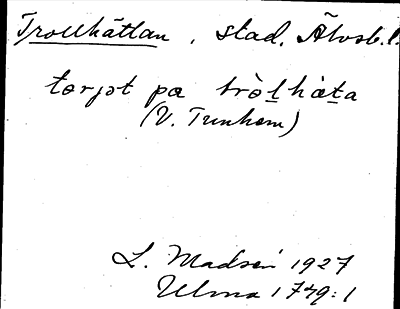 Trollhättan, stad. Älvsb. l.
torjət pɑ tròlhὰta
(V. Tunhem)
L. Madsén 1927
Ulma 1749:1